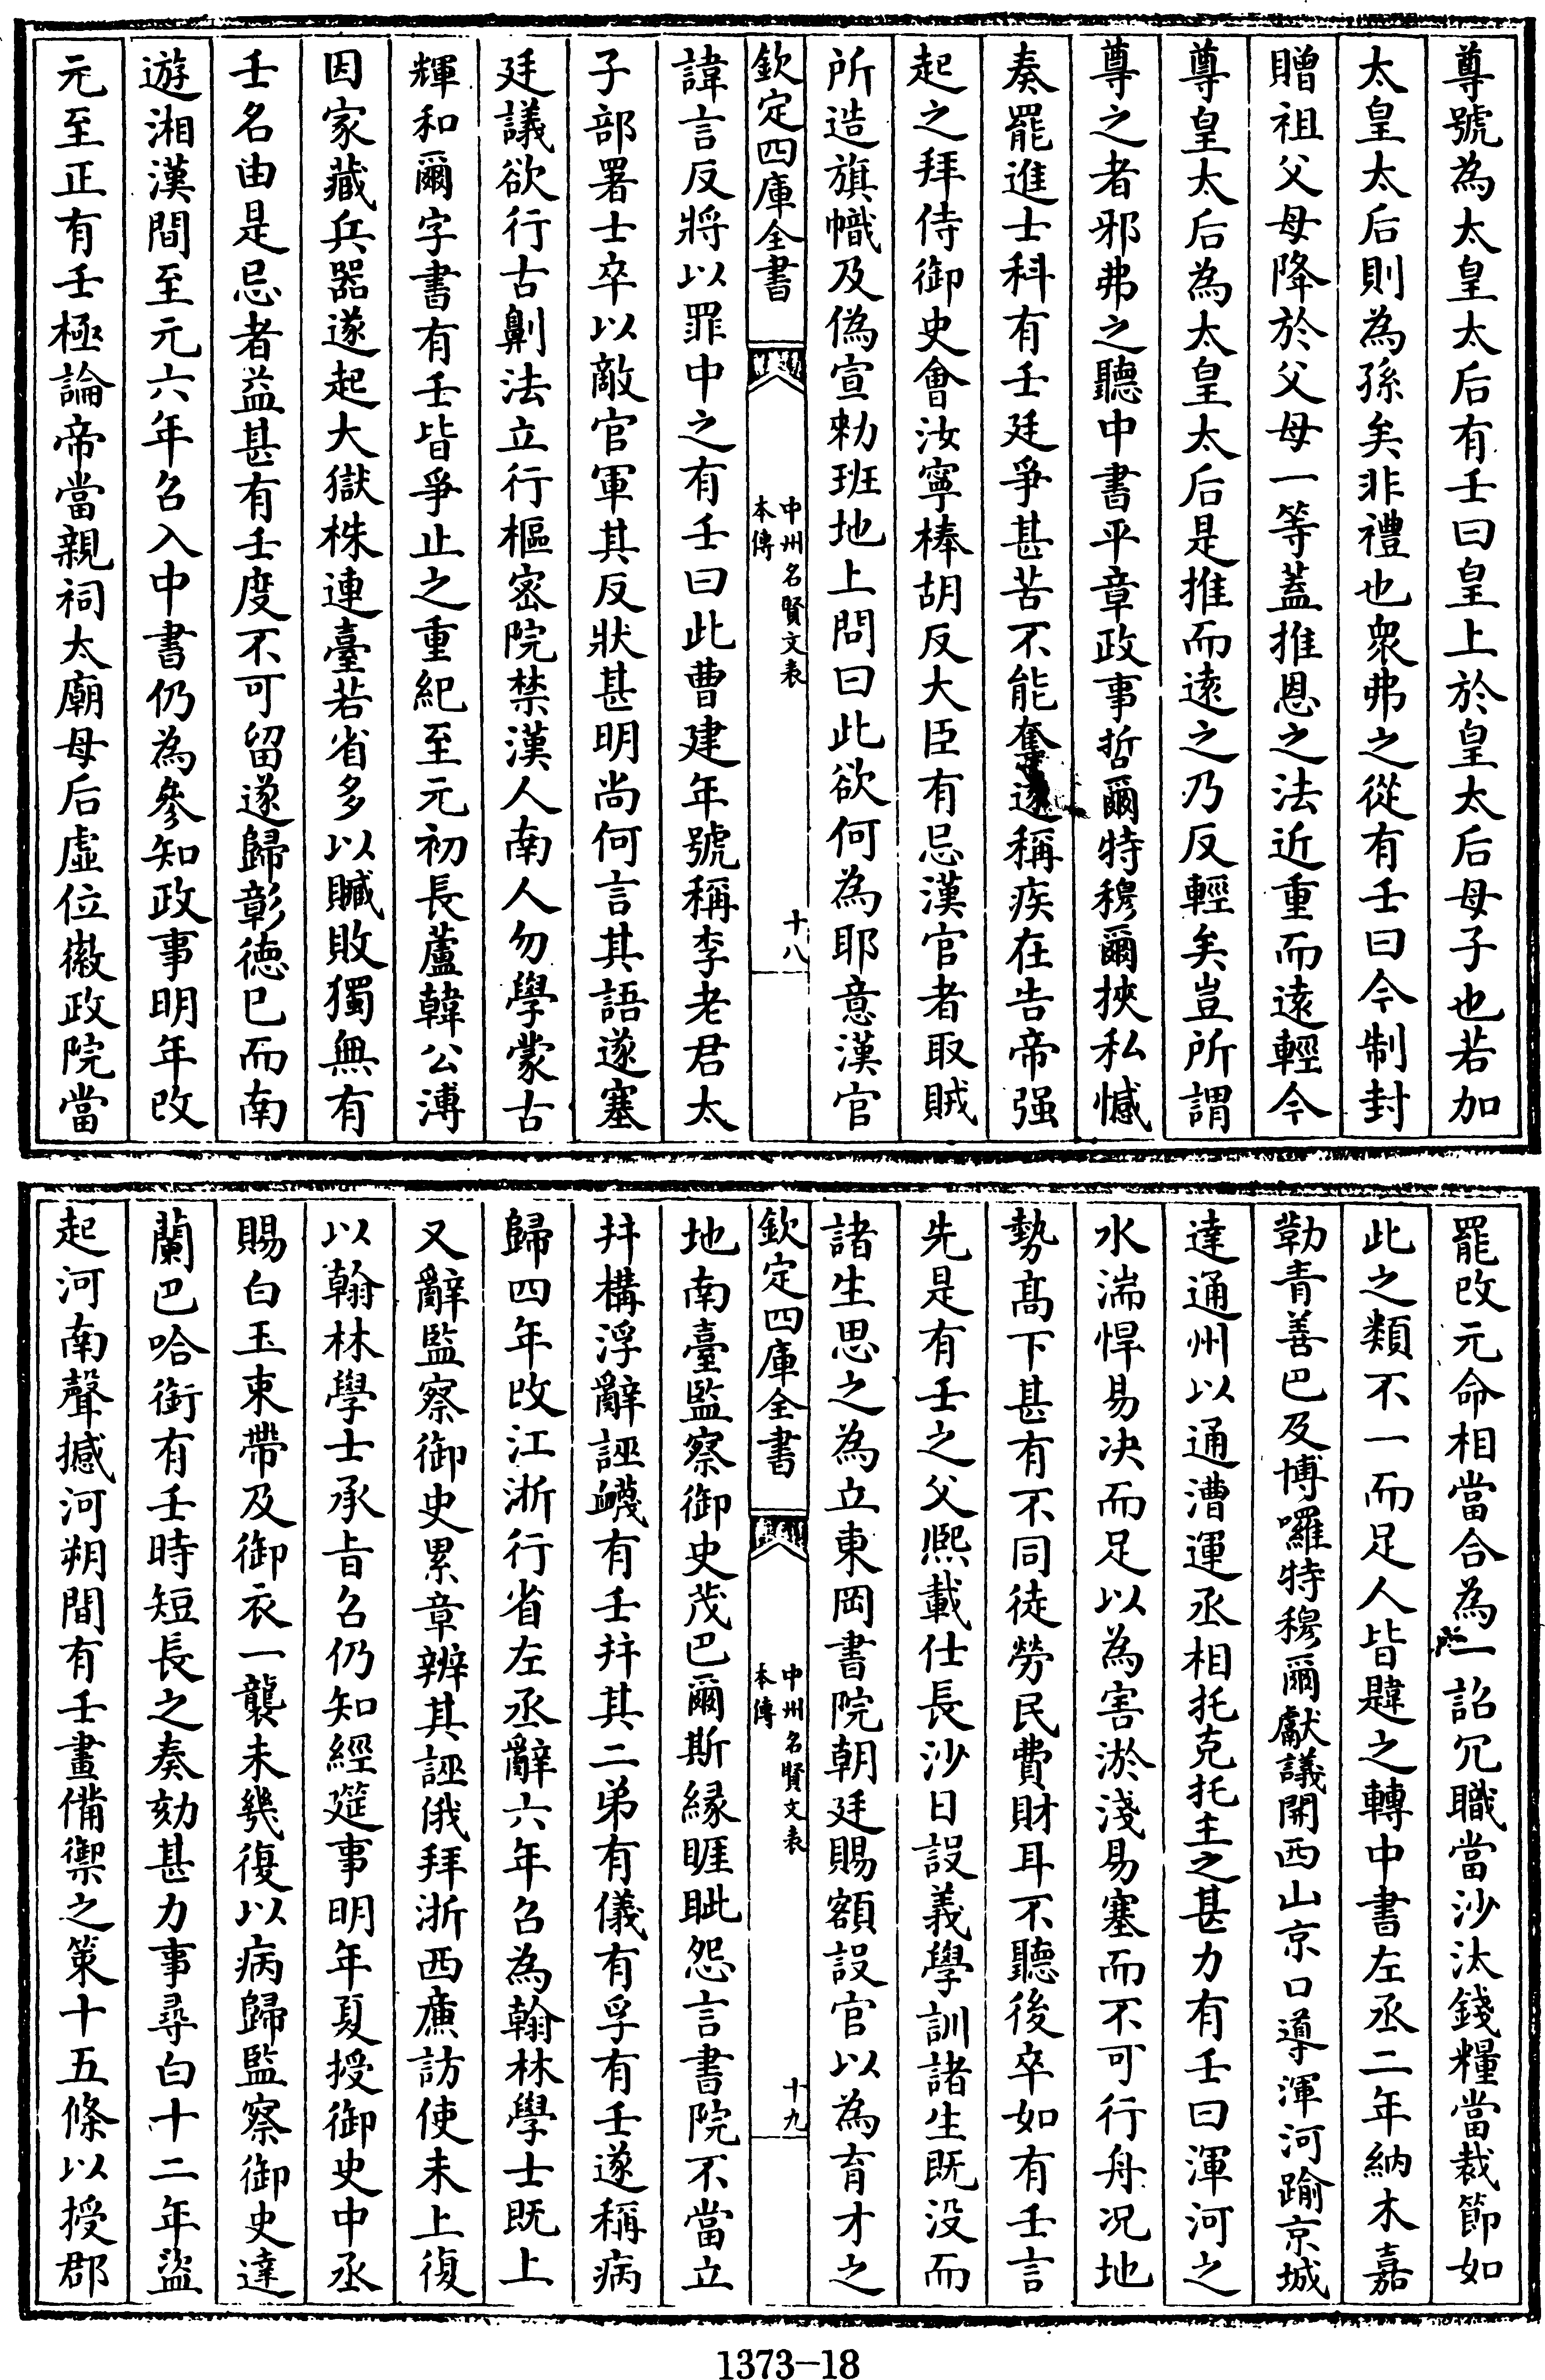 尊號為太皇太后有壬曰皇上於皇太后母子也若加
太皇太后則為孫矣非禮也衆弗之從有壬曰今制封
贈祖父母降於父母一等蓋推恩之法近重而逺輕今
尊皇太后為太皇太后是推而逺之乃反輕矣豈所謂
尊之者邪弗之聽中書平章政事哲爾特穆爾挾私憾
奏罷進士科有壬廷爭甚苦不能奪遂稱疾在告帝强
起之拜侍御史會汝寧棒胡反大臣有忌漢官者取賊
所造旗幟及偽宣勑班地上問曰此欲何為耶意漢官
欽定四庫全書
中州名賢文表
本傳
十八
諱言反將以罪中之有壬曰此曹建年號稱李老君太
子部署士卒以敵官軍其反狀甚明尚何言其語遂塞
廷議欲行古劓法立行樞密院禁漢人南人勿學蒙古
輝和爾字書有壬皆爭止之重紀至元初長蘆韓公溥
因家藏兵器遂起大獄株連臺若省多以贓敗獨無有
壬名由是忌者益甚有壬度不可留遂歸彰德已而南
遊湘漢間至元六年召入中書仍為參知政事明年改
元至正有壬極論帝當親祠太廟母后虛位徽政院當
罷改元命相當合為一詔冗職當沙汰錢糧當裁節如
此之類不一而足人皆韙之轉中書左丞二年納木嘉
勒青善巴及博囉特穆爾獻議開西山京口導渾河踰京城
達通州以通漕運丞相托克托主之甚力有壬曰渾河之
水湍悍易決而足以為害淤淺易塞而不可行舟況地
勢髙下甚有不同徒勞民費財耳不聽後卒如有壬言
先是有壬之父熙載仕長沙日設義學訓諸生既没而
諸生思之為立東岡書院朝廷賜額設官以為育才之
欽定四庫全書
中州名賢文表
本傳
十九
地南臺監察御史茂巴爾斯縁睚眦怨言書院不當立
并構浮辭誣衊有壬并其二弟有儀有孚有壬遂稱病
歸四年改江浙行省左丞辭六年召為翰林學士既上
又辭監察御史累章辨其誣俄拜浙西㢘訪使未上復
以翰林學士承旨召仍知經筵事明年夏授御史中丞
賜白玉束帶及御衣一襲未幾復以病歸監察御史達
蘭巴哈銜有壬時短長之奏劾甚力事尋白十二年盜
起河南聲撼河朔間有壬畫備禦之策十五條以授郡
1373-18